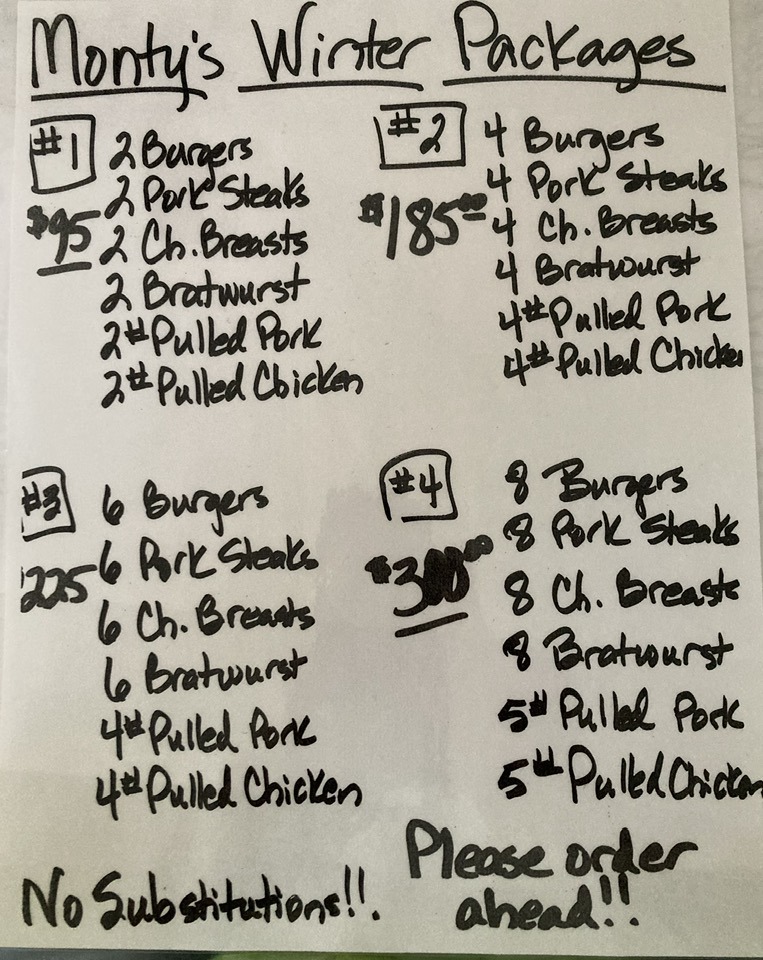 Monty's Winter Packages
#1
$95
2 Burgers
2 Pork Steaks
2 Ch. Breasts
2 Bratwurst
2# Pulled Pork
2# Pulled Chicken
#2
$185.00
4 Burgers
4 Pork Steaks
4 Ch. Breasts
4 Bratwurst
4# Pulled Pork
4# Pulled Chicken
#3
225
6 Burgers
6 Pork Steaks
6 Ch. Breasts
6 Bratwurst
4# Pulled Pork
4# Pulled Chicken
#4
8 Burgers
8 Pork Steaks
8 Ch. Breasts
8 Bratwurst
5# Pulled Pork
5# Pulled Chicken
No Substitutions!!.
Please order
ahead!!